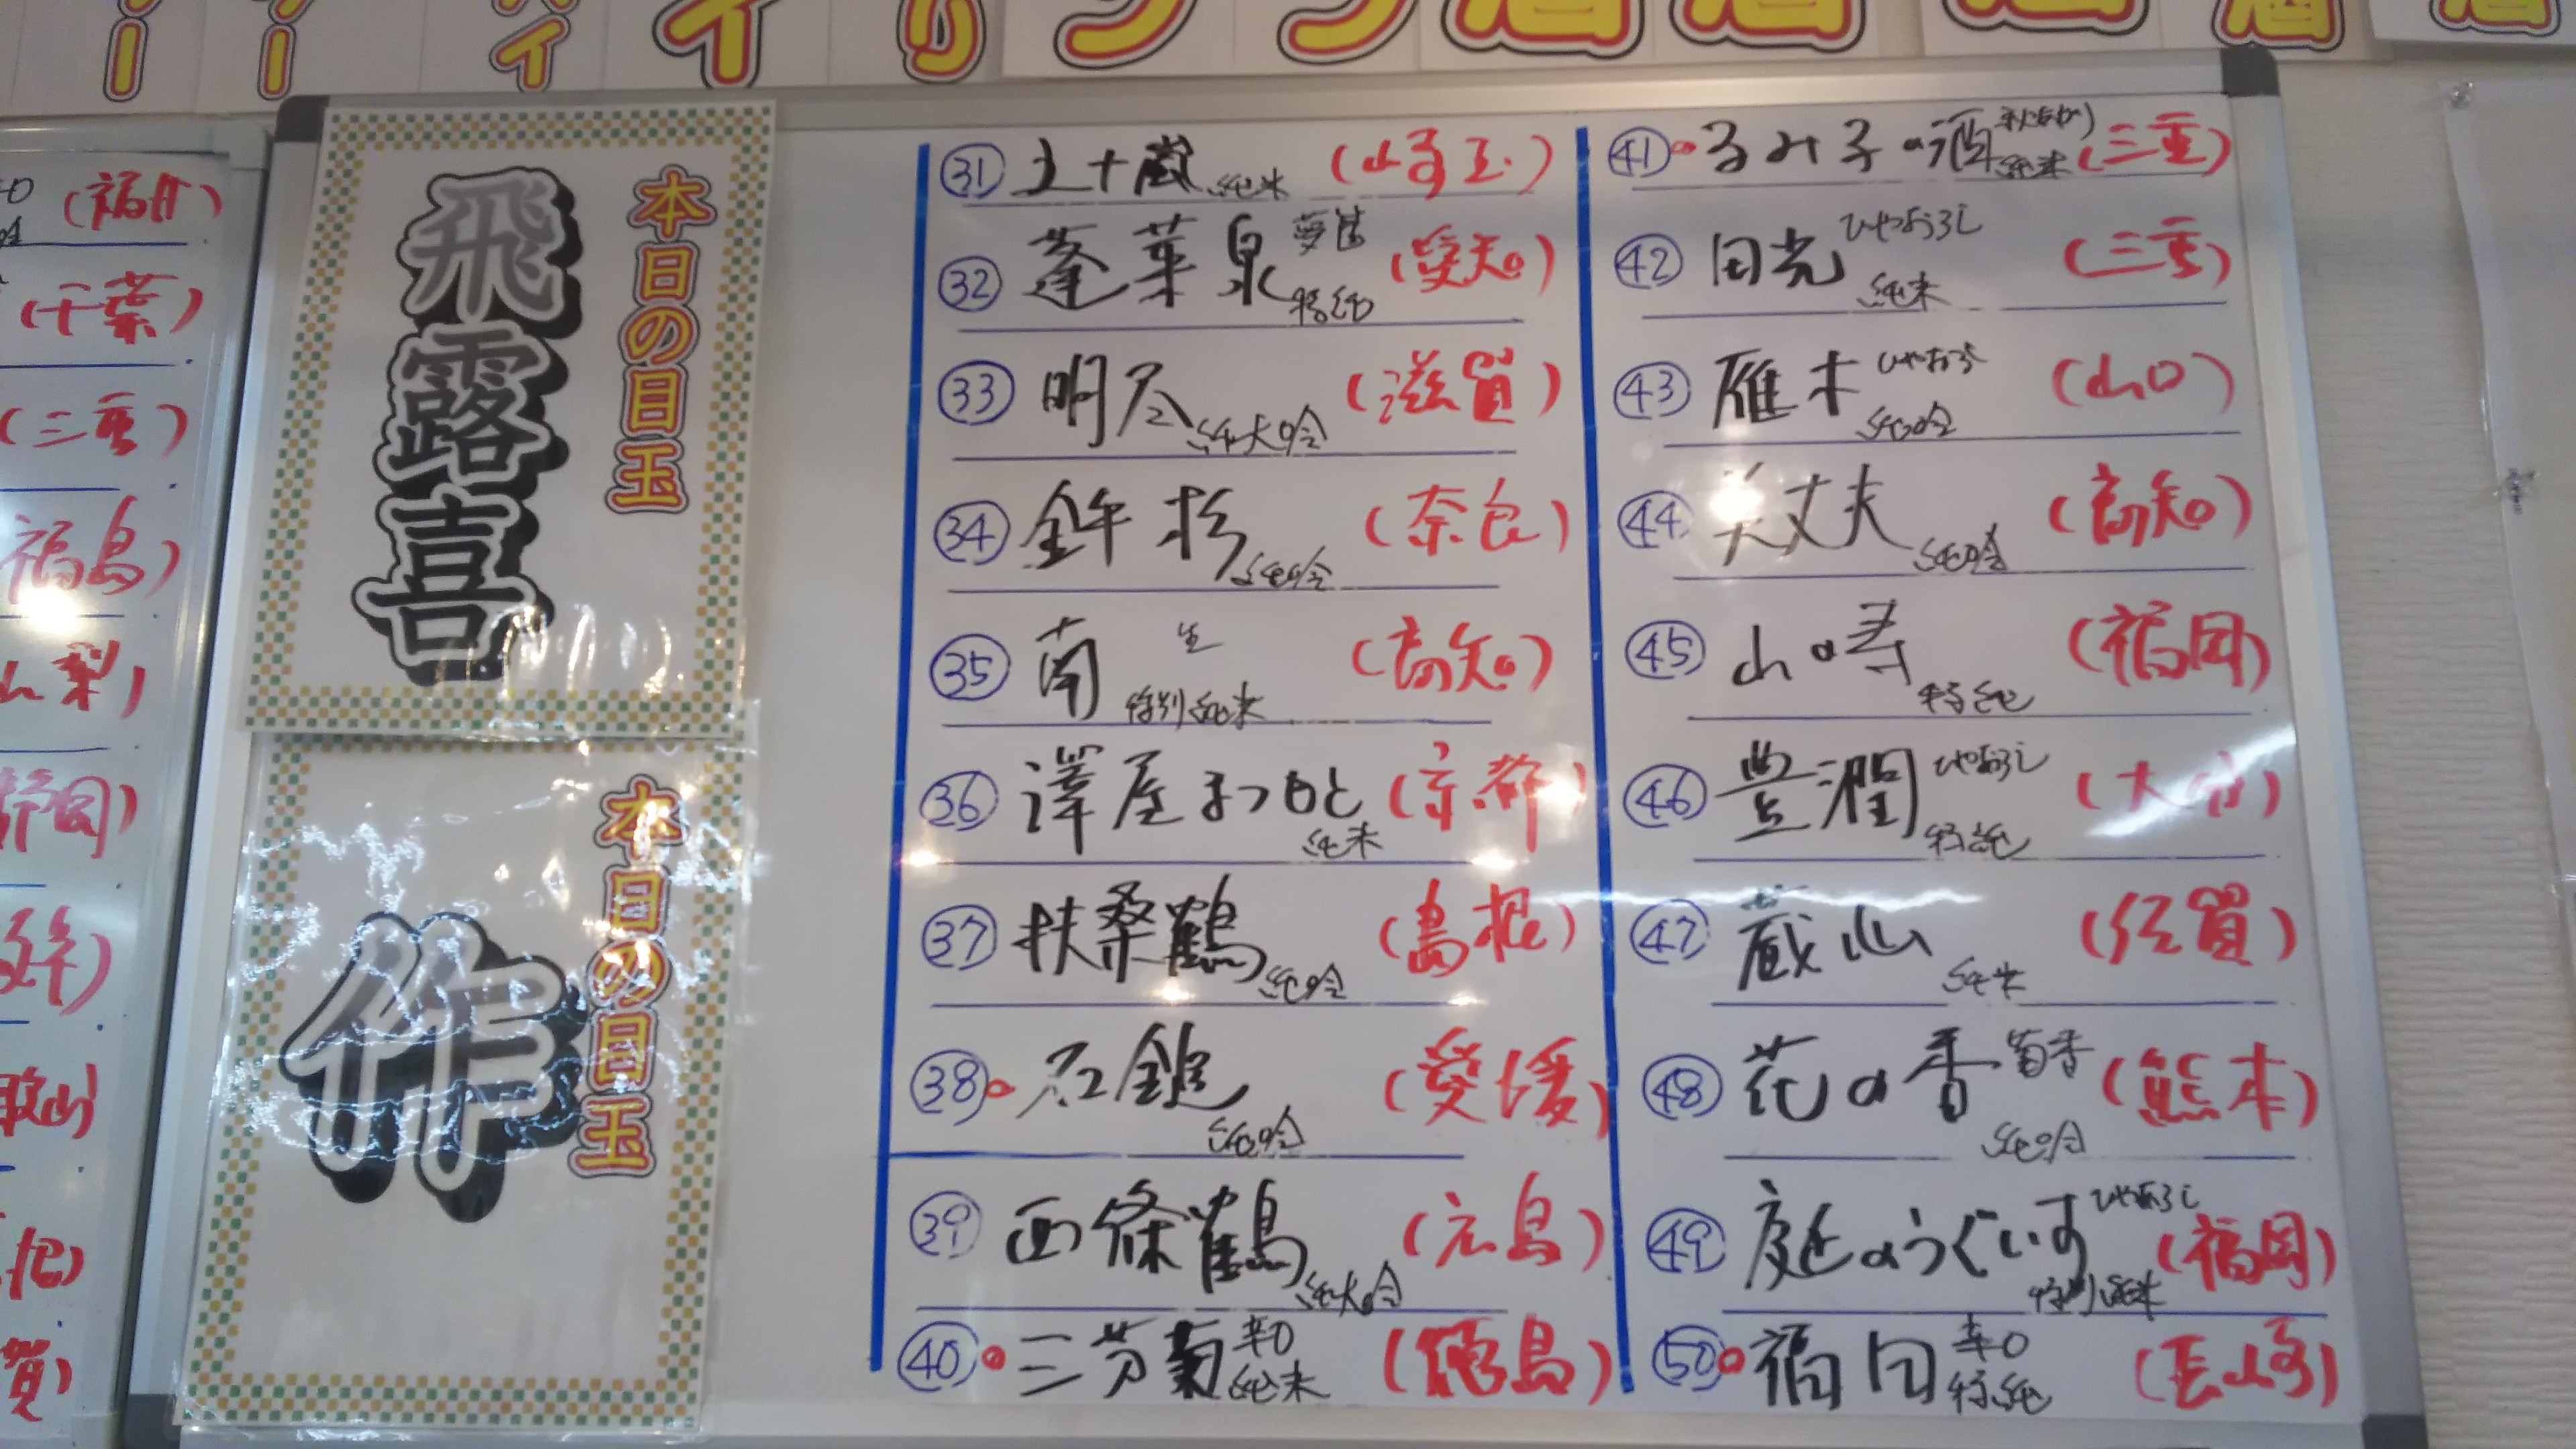 (福井)
(千葉)
(三重)
福島)
山梨)
静岡)
賀)
本日の目玉
飛露喜
本日の目玉
作
㉛ 五十嵐 純米 (埼玉)
㉜ 蓬莱泉 特純 (愛知)
㉝ 明尽 純大吟 (滋賀)
㉞ 鉾杉 純吟 (奈良)
㉟ 南 生 特別純米 (高知)
㊱ 澤屋まつもと 純米 (京都)
㊲ 扶桑鶴 純吟 (島根)
㊳ 石鎚 純吟 (愛媛)
㊴ 西條鶴 純大吟 (広島)
㊵ 三芳菊 辛口 純米 (徳島)
㊶ るみ子の酒 純米 (三重)
㊷ 田光 ひやおろし 純米 (三重)
㊸ 雁木 ひやおろし 純吟 (山口)
㊹ 美丈夫 純吟 (高知)
㊺ 山の寿 特純 (福岡)
㊻ 豊潤 ひやおろし 特純 (大分)
㊼ 蔵山 純米 (佐賀)
㊽ 花の香 菊香 純吟 (熊本)
㊾ 庭のうぐいす ひやおろし 特別純米 (福岡)
㊿ 福田 辛口 特純 (長崎)